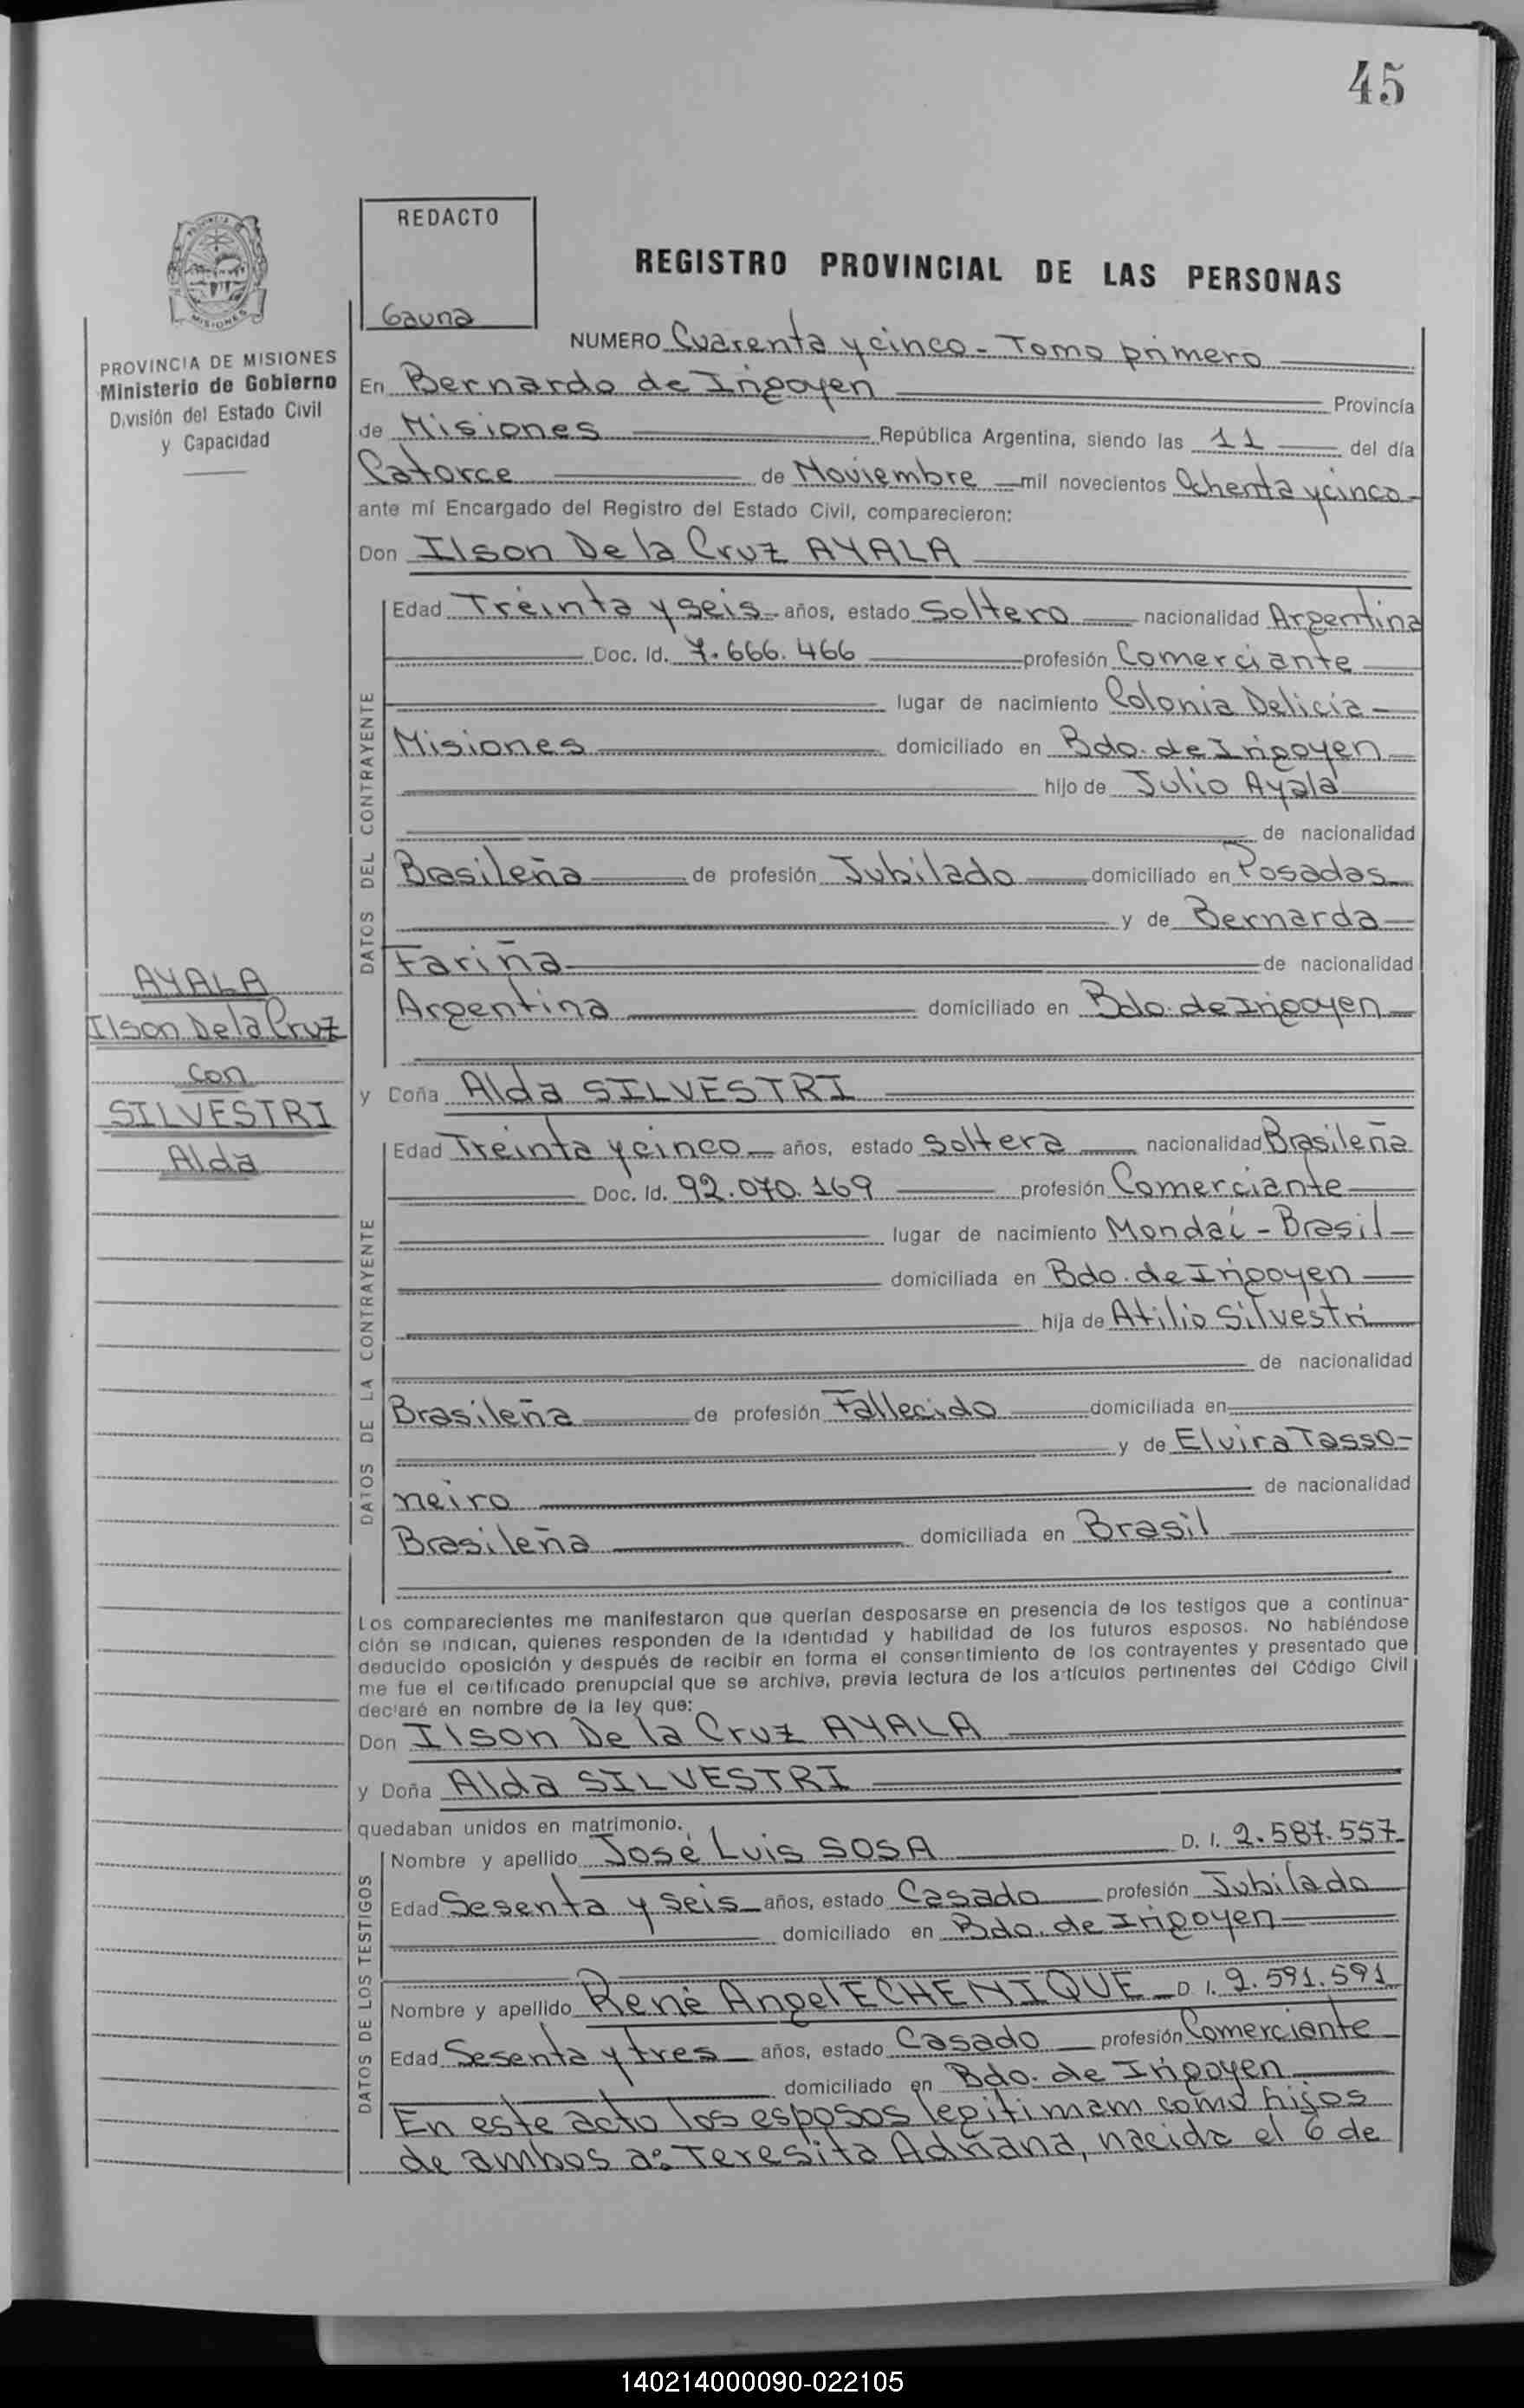 45
REDACTO
Gauna
MISIONES
PROVINCIA DE MISIONES
Ministerio de Gobierno
División del Estado Civil
y Capacidad
REGISTRO PROVINCIAL DE LAS PERSONAS
NUMERO Cuarenta y cinco - Tomo primero
En Bernardo de Irigoyen Provincia
de Misiones República Argentina, siendo las 11 del día
Catorce de Noviembre mil novecientos Ochenta y cinco
ante mí Encargado del Registro del Estado Civil, comparecieron:
Don Ilson De la Cruz AYALA
DATOS DEL CONTRAYENTE
Edad Treinta y seis años, estado Soltero nacionalidad Argentina
Doc. Id. 7.666.466 profesión Comerciante
lugar de nacimiento Colonia Delicia -
Misiones domiciliado en Bdo. de Irigoyen
hijo de Julio Ayala
de nacionalidad
Brasileña de profesión Jubilado domiciliado en Posadas
y de Bernarda
Fariña de nacionalidad
Argentina domiciliado en Bdo. de Irigoyen
AYALA
Ilson De la Cruz
con
SILVESTRI
Alda
y Doña Alda SILVESTRI
DATOS DE LA CONTRAYENTE
Edad Treinta y cinco años, estado soltera nacionalidad Brasileña
Doc. Id. 92.070.169 profesión Comerciante
lugar de nacimiento Mondaí - Brasil
domiciliada en Bdo. de Irigoyen
hija de Atilio Silvestri
de nacionalidad
Brasileña de profesión Fallecido domiciliada en
y de Elvira Tasso-
neiro de nacionalidad
Brasileña domiciliada en Brasil
Los comparecientes me manifestaron que querían desposarse en presencia de los testigos que a continua-
ción se indican, quienes responden de la identidad y habilidad de los futuros esposos. No habiéndose
deducido oposición y después de recibir en forma el consentimiento de los contrayentes y presentado que
me fue el certificado prenupcial que se archiva, previa lectura de los artículos pertinentes del Código Civil
declaré en nombre de la ley que:
Don Ilson De la Cruz AYALA
y Doña Alda SILVESTRI
quedaban unidos en matrimonio.
DATOS DE LOS TESTIGOS
Nombre y apellido José Luis SOSA D. I. 2.587.557
Edad Sesenta y seis años, estado Casado profesión Jubilado
domiciliado en Bdo. de Irigoyen
Nombre y apellido René Angel ECHENIQUE D. I. 2.591.591
Edad Sesenta y tres años, estado Casado profesión Comerciante
domiciliado en Bdo. de Irigoyen
En este acto los esposos legitimam como hijos
de ambos a: Teresita Adriana, nacida el 6 de
140214000090-022105